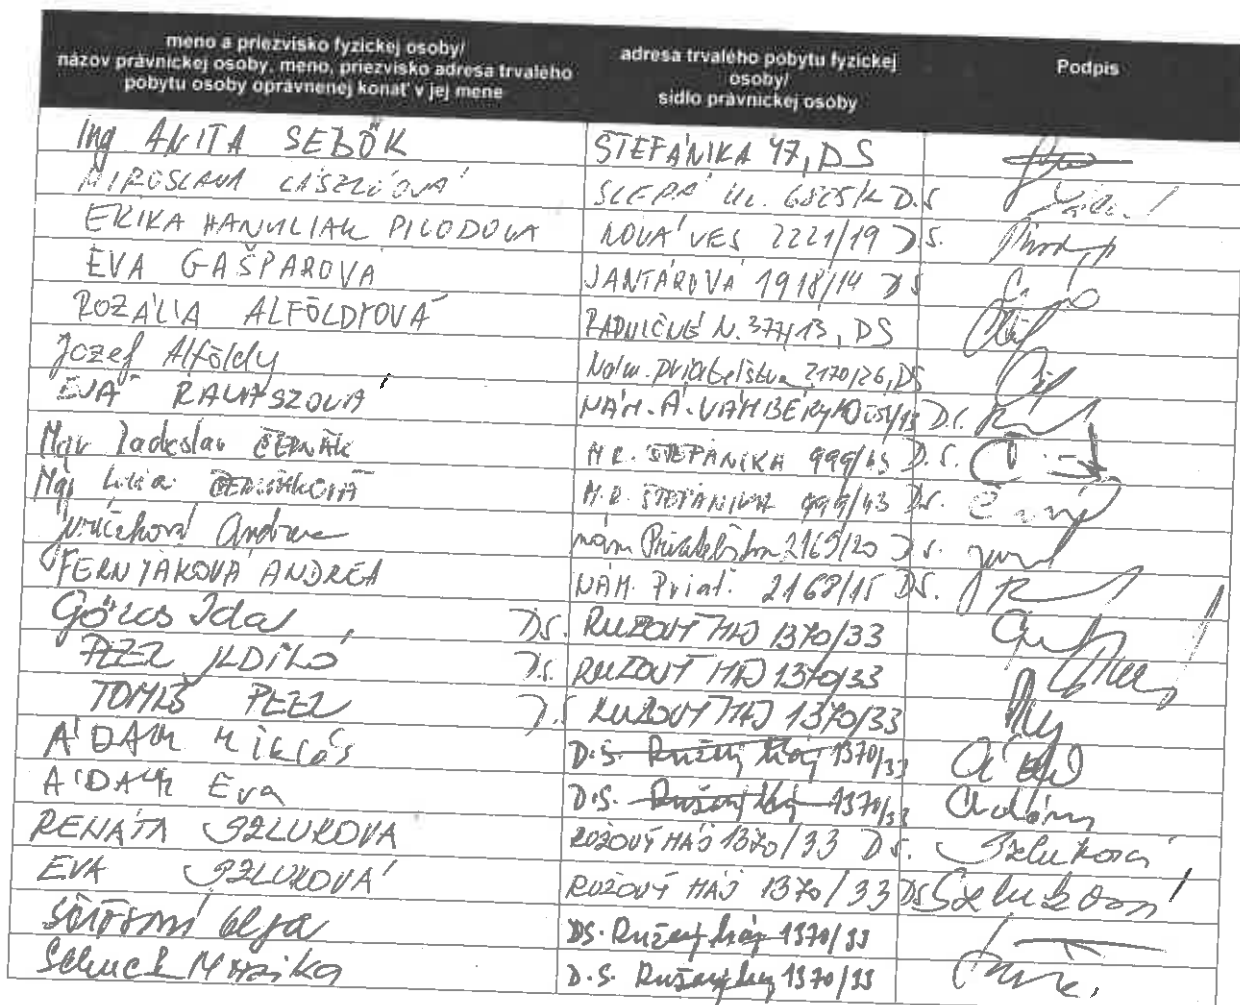 meno a priezvisko fyzickej osoby/
názov právnickej osoby, meno, priezvisko adresa trvalého
pobytu osoby oprávnenej konať v jej mene
adresa trvalého pobytu fyzickej
osoby/
sídlo právnickej osoby
Podpis
Ing ANITA SEBÖK ŠTEFÁNIKA 47, DS
MIROSLAVA LÁSZLÓOVÁ SLEPÁ UL. D.S
ERIKA HANULIAK PILODOVA NOVÁ VES 2221/19 D.S.
EVA GAŠPAROVÁ JANTÁROVÁ 1918/14 DS
ROZÁLIA ALFÖLDYOVÁ RADNIČNÉ N. 377/13, DS
Jozef Alföldy Nám. priateľstva 2170/26, DS
EVA NÁM. Á. VÁMBÉRYHO D.S.
Mgr Ladislav ČERNÁK M.R. ŠTEFÁNIKA 999/43 D.S.
Mgr ČERNÁKOVÁ M.R. ŠTEFÁNIKA 999/43 D.S.
Juričková Andrea nám Priateľstva 2169/20 D.S.
FERNYÁKOVÁ ANDREA NÁM. Priat. 2168/15 DS.
Göcös Ida DS. RUŽOVÝ HÁJ 1370/33
PEZL ILDIKÓ D.S. RUŽOVÝ HÁJ 1370/33
TOMÁŠ PEZL D.S RUŽOVÝ HÁJ 1370/33
ÁDAM Miklós D.S. Ružový háj 1370/33
ÁDAM Eva D.S. Ružový háj 1370/33 Ádám
RENÁTA SZLUKOVA RUŽOVÝ HÁJ 1370/33 D.S. Szluková
EVA SZLUKOVÁ RUŽOVÝ HÁJ 1370/33 DS Szluková
Olga DS. Ružový háj 1370/33
Schuck Mónika D.S. Ružový háj 1370/33